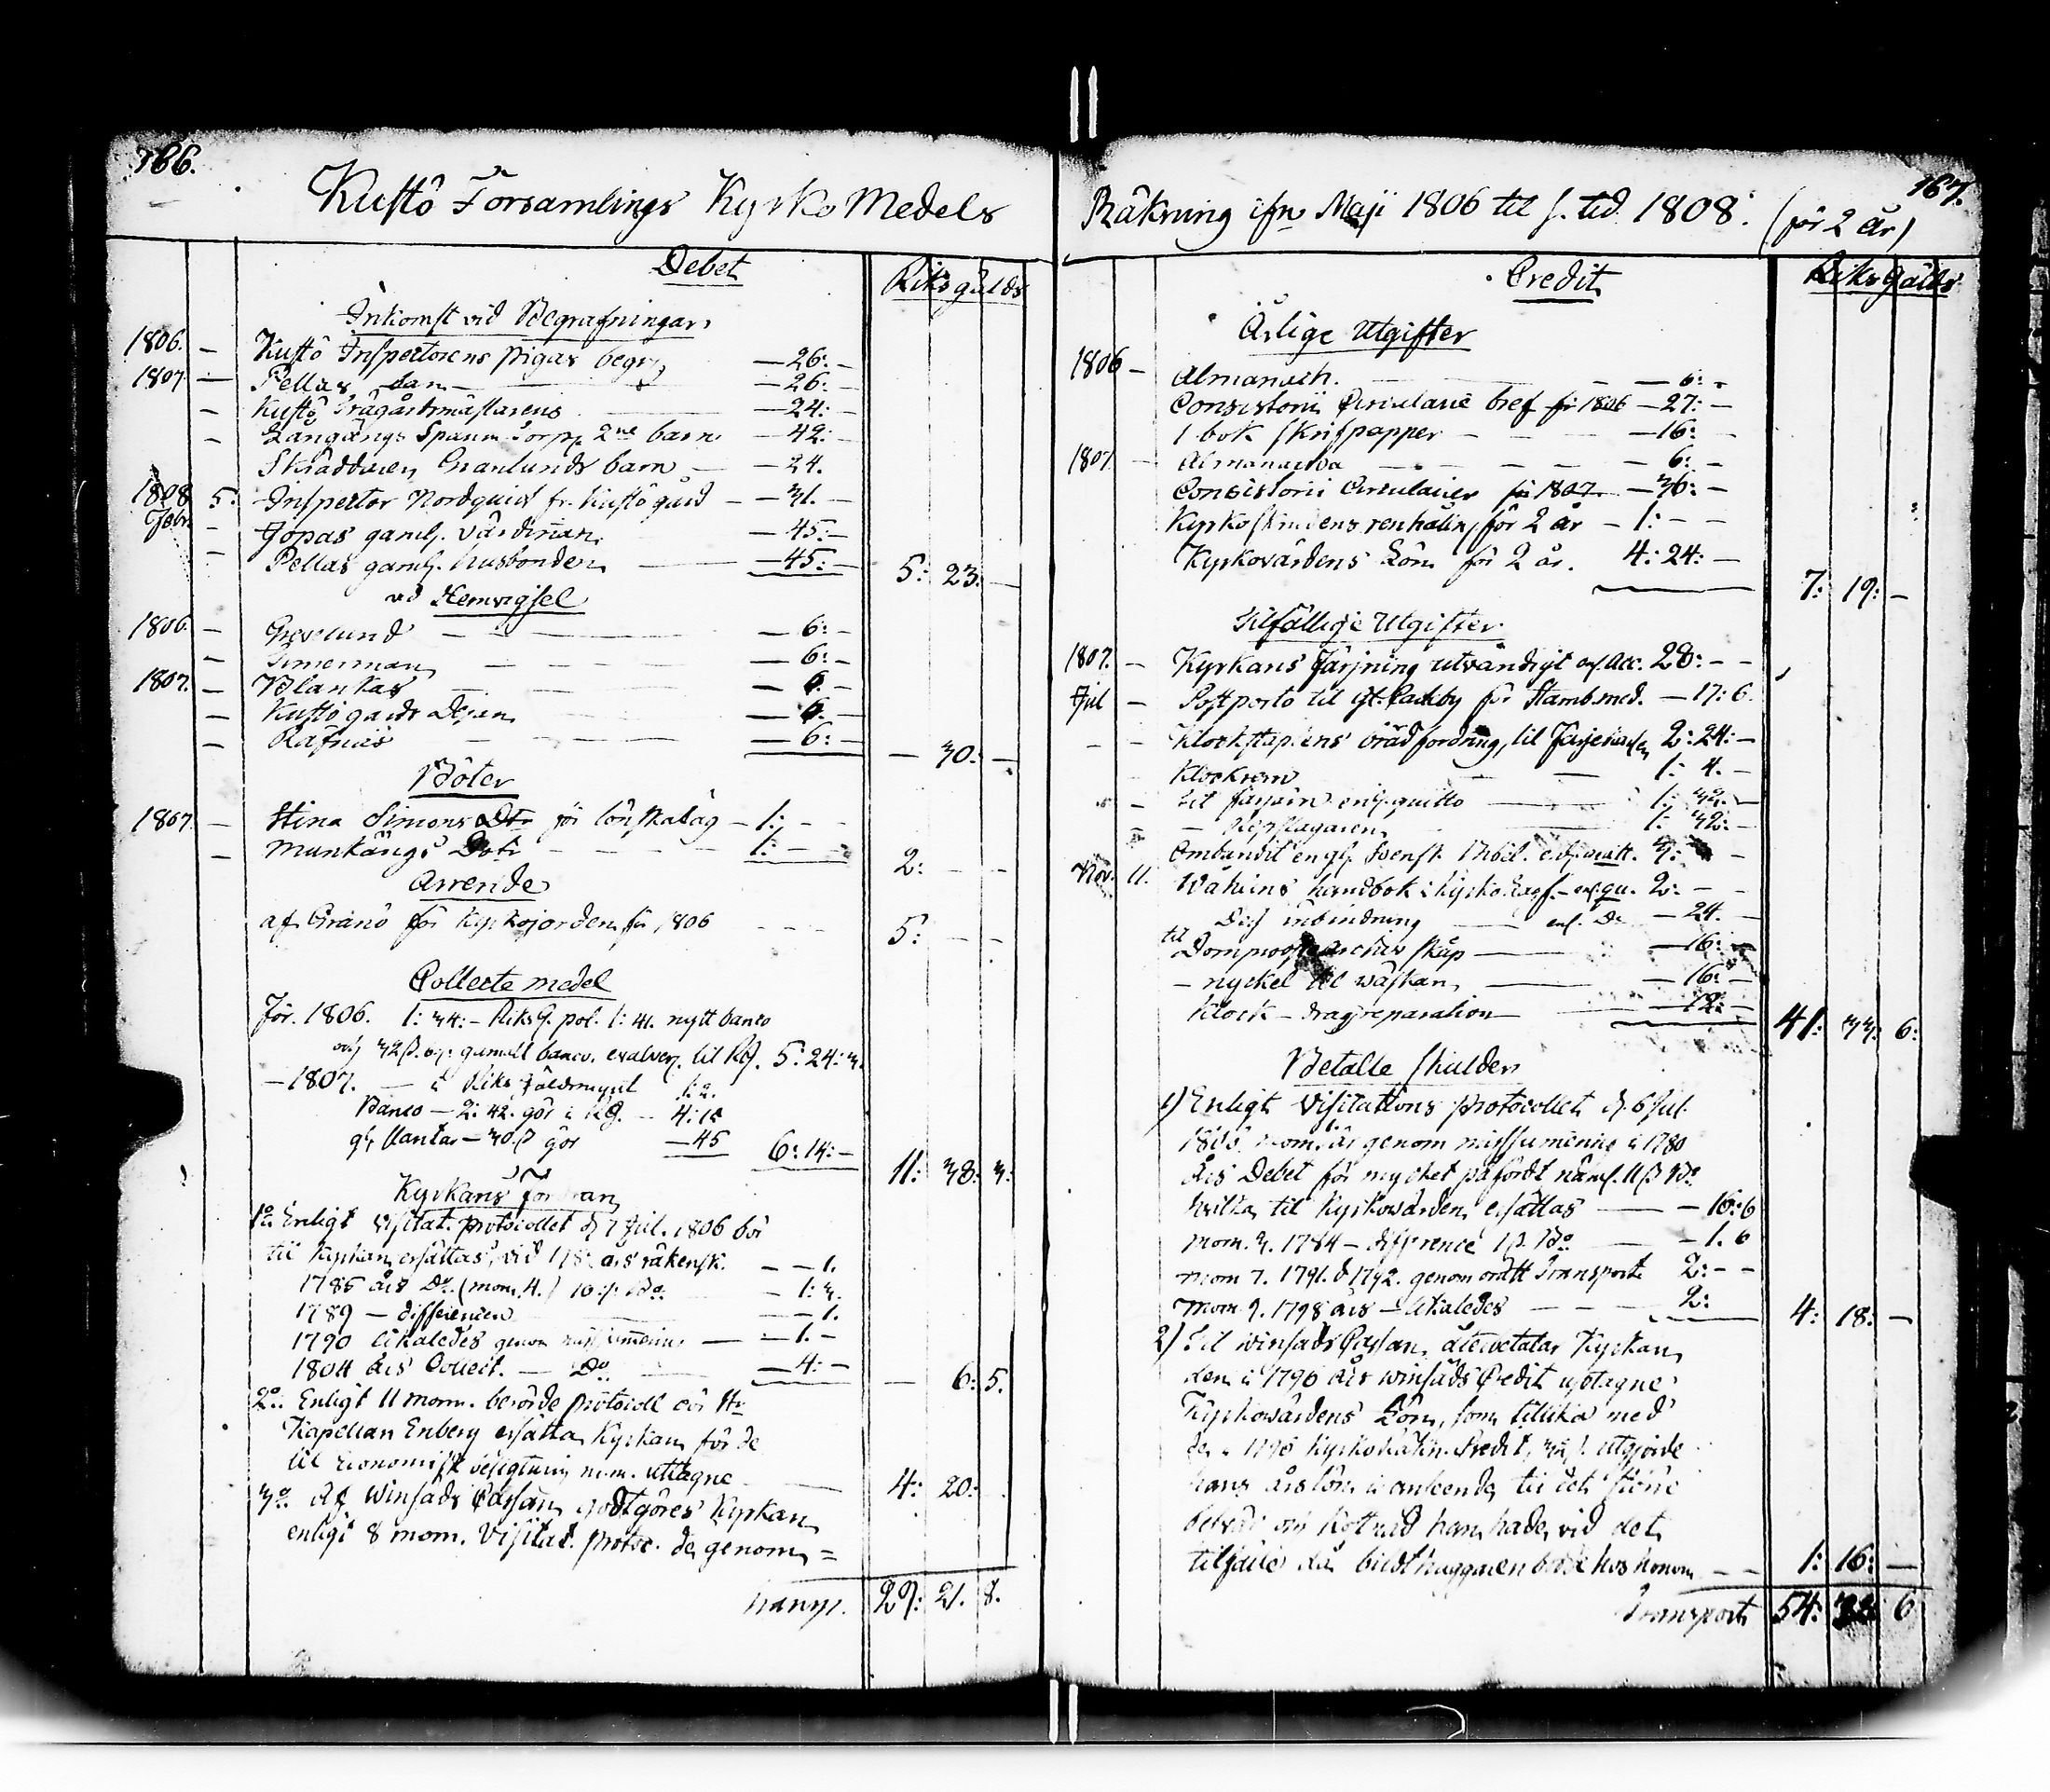 166.
Kustö Församlings Kyrko Medels
Debet
Riksgälds
Inkomst vid Begrafningar
1806. — Kustö Inspectorens pigas begr. — 26: —
1807 — Pellas barn — — 26: —
— Kustö Trägårdsmästarens — 24: —
— Långängs Spanm. Torpp. 2ne barn — 42: —
Skräddaren Granlunds barn — — 24.
1808 Febr. 5: Inspector Nordquist fr. Kustö gård — — 31. —
— Jopas gaml. Värdinnan — 45: —
— Pellas gaml. husbonden — — 45: — 5: 23: —
vid Hemvigsel
1806. — Grevelund — — — 6: —
— Timerman — — — 6: —
1807. — Blankas — — — 6. —
— Kustö gårds Dejan — — 6. —
— Rafnäs — — — 6: — — 30: —
Böter
1807 — Stina Simons Dtr för lönskaläg — 1: — —
— Munkängs Dotr — — 1: — — 2: — —
Arrende
af Granö för Kyrkojorden för 1806 — — — 5: — —
Collecte medel
För 1806. 1: 34: — RiksG. pol. 1: 41. nytt banco
och 32ß. 6: gamalt banco. evalver. til RG. 5: 24: 3.
— 1807. — i Riks Gäldsmynt 1: 2.
Banco — 2: 42. gör i RG. — 4: 15
Plantar — 30.ß gör — 45 6: 14: — 11: 38: 3:
Kyrkans fordran
1o. Enligt Visitat. protocollet d. 7 Jul. 1806 bör
til Kyrkan ersättas, vid års räkensk. — — 1.
1786 års Do. (mom. 4.) Bo: — 1: 3.
1789 — differencen — 1.
1790 likaledes genom — — 1. —
1804 års Collect. — Do. — 4: — — 6: 5.
2o. Enligt 11 mom. berörde protocoll bör Hr
Kapellan Enberg ersätta Kyrkan för de
til Economisk besigtning m.m. uttagne — 4: 20: —
3o. Af Winsads Cassan godtgöres Kyrkan
enligt 8 mom. Visitat. protoc. de genom =
Transp. 29: 21. 8.
167.
Räkning ifrn Maji 1806 til s. tid 1808. (för 2 år)
Credit
Riks Gälds
Årlige Utgifter
1806 — Almanach. — — — 6: —
Consistorii Circulaire bref för 1806 — 27: —
1 bok skrifpapper — — — 16: —
1807 — Almanacka — — — — 6: —
Consistorii Circulairer för 1807 — 36: —
Kyrko renhåln. för 2 år — 1: — —
Kyrkovärdens Lön för 2 år. 4: 24: — 7: 19: —
Tilfällige Utgifter
1807. — Kyrkans Färjning utvändigt enl. acc. 28: — —
Jul — Postporto til för Stamb.med. — 17: 6.
— — Klockstapelens til 2: 24: —
Klockrem — — 1: 4. —
— til enl. quitto — 1: 32. —
— Repslagaren — 1: 32: —
Ombundit en gl. Svensk Bibel. enl. quitt. 3: —
Nov. 11. Wåhlins handbok i Kyrko Lagf. — enl. qu. 2: — —
Dess inbindning — enl. Do — 24. —
til skåp — — 16: —
— nyckel til wäskan — — 16: —
Klock — dragreparation — 12: — 41: 33: 6:
Betalte skulder
1) Enligt Visitations protocollet d. 6 Jul.
mom. är genom missumering i 1780
års Debet för mycket påfördt näml. 11 ß Bo
hvilka til Kyrkovärden ersättas — — 16: 6
Mom. 3. 1784 — difference 1 ß. Bo — — 1. 6
Mom 7. 1791. & 1792. genom orätt Transport 2: — —
Mom. 9. 1798 års — likaledes — — — 2: 4: 18: —
2) Til winsads Cassan återbetalar Kyrkan
den i 1796 års winsads Credit uptagne
Kyrkovärdens Lön, som tillika med
Kyrko Räkn. Credit, utgjorde
hans årslön i anseende til det större
besvär och kostnad han hade, vid det
tilfälle då bildthuggaren bodde hos honom — — 1: 16: —
Transport 54: 6